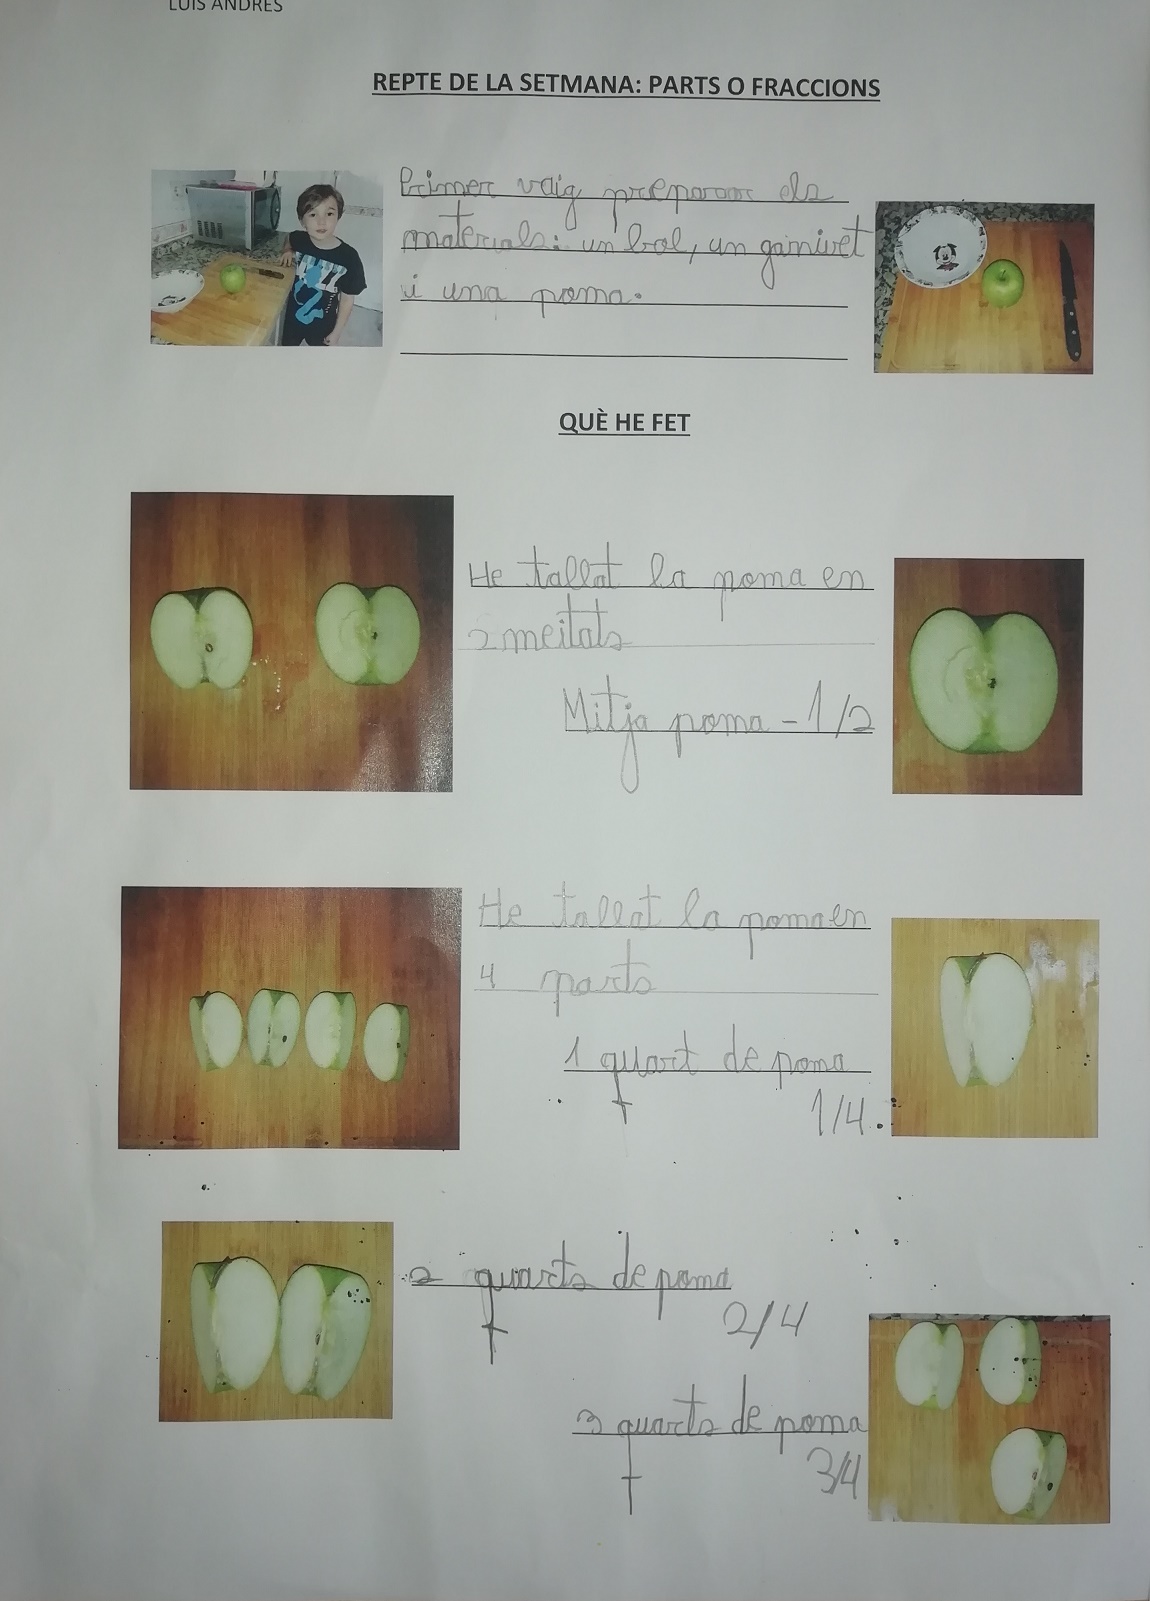 LUIS ANDRES
REPTE DE LA SETMANA: PARTS O FRACCIONS
Primer vaig preparar els
materials: un bol, un ganivet
i una poma.
QUÈ HE FET
He tallat la poma en
2 meitats
Mitja poma - 1/2
He tallat la poma en
4 parts
1 quart de poma
1/4
2 quarts de poma
2/4
3 quarts de poma
3/4